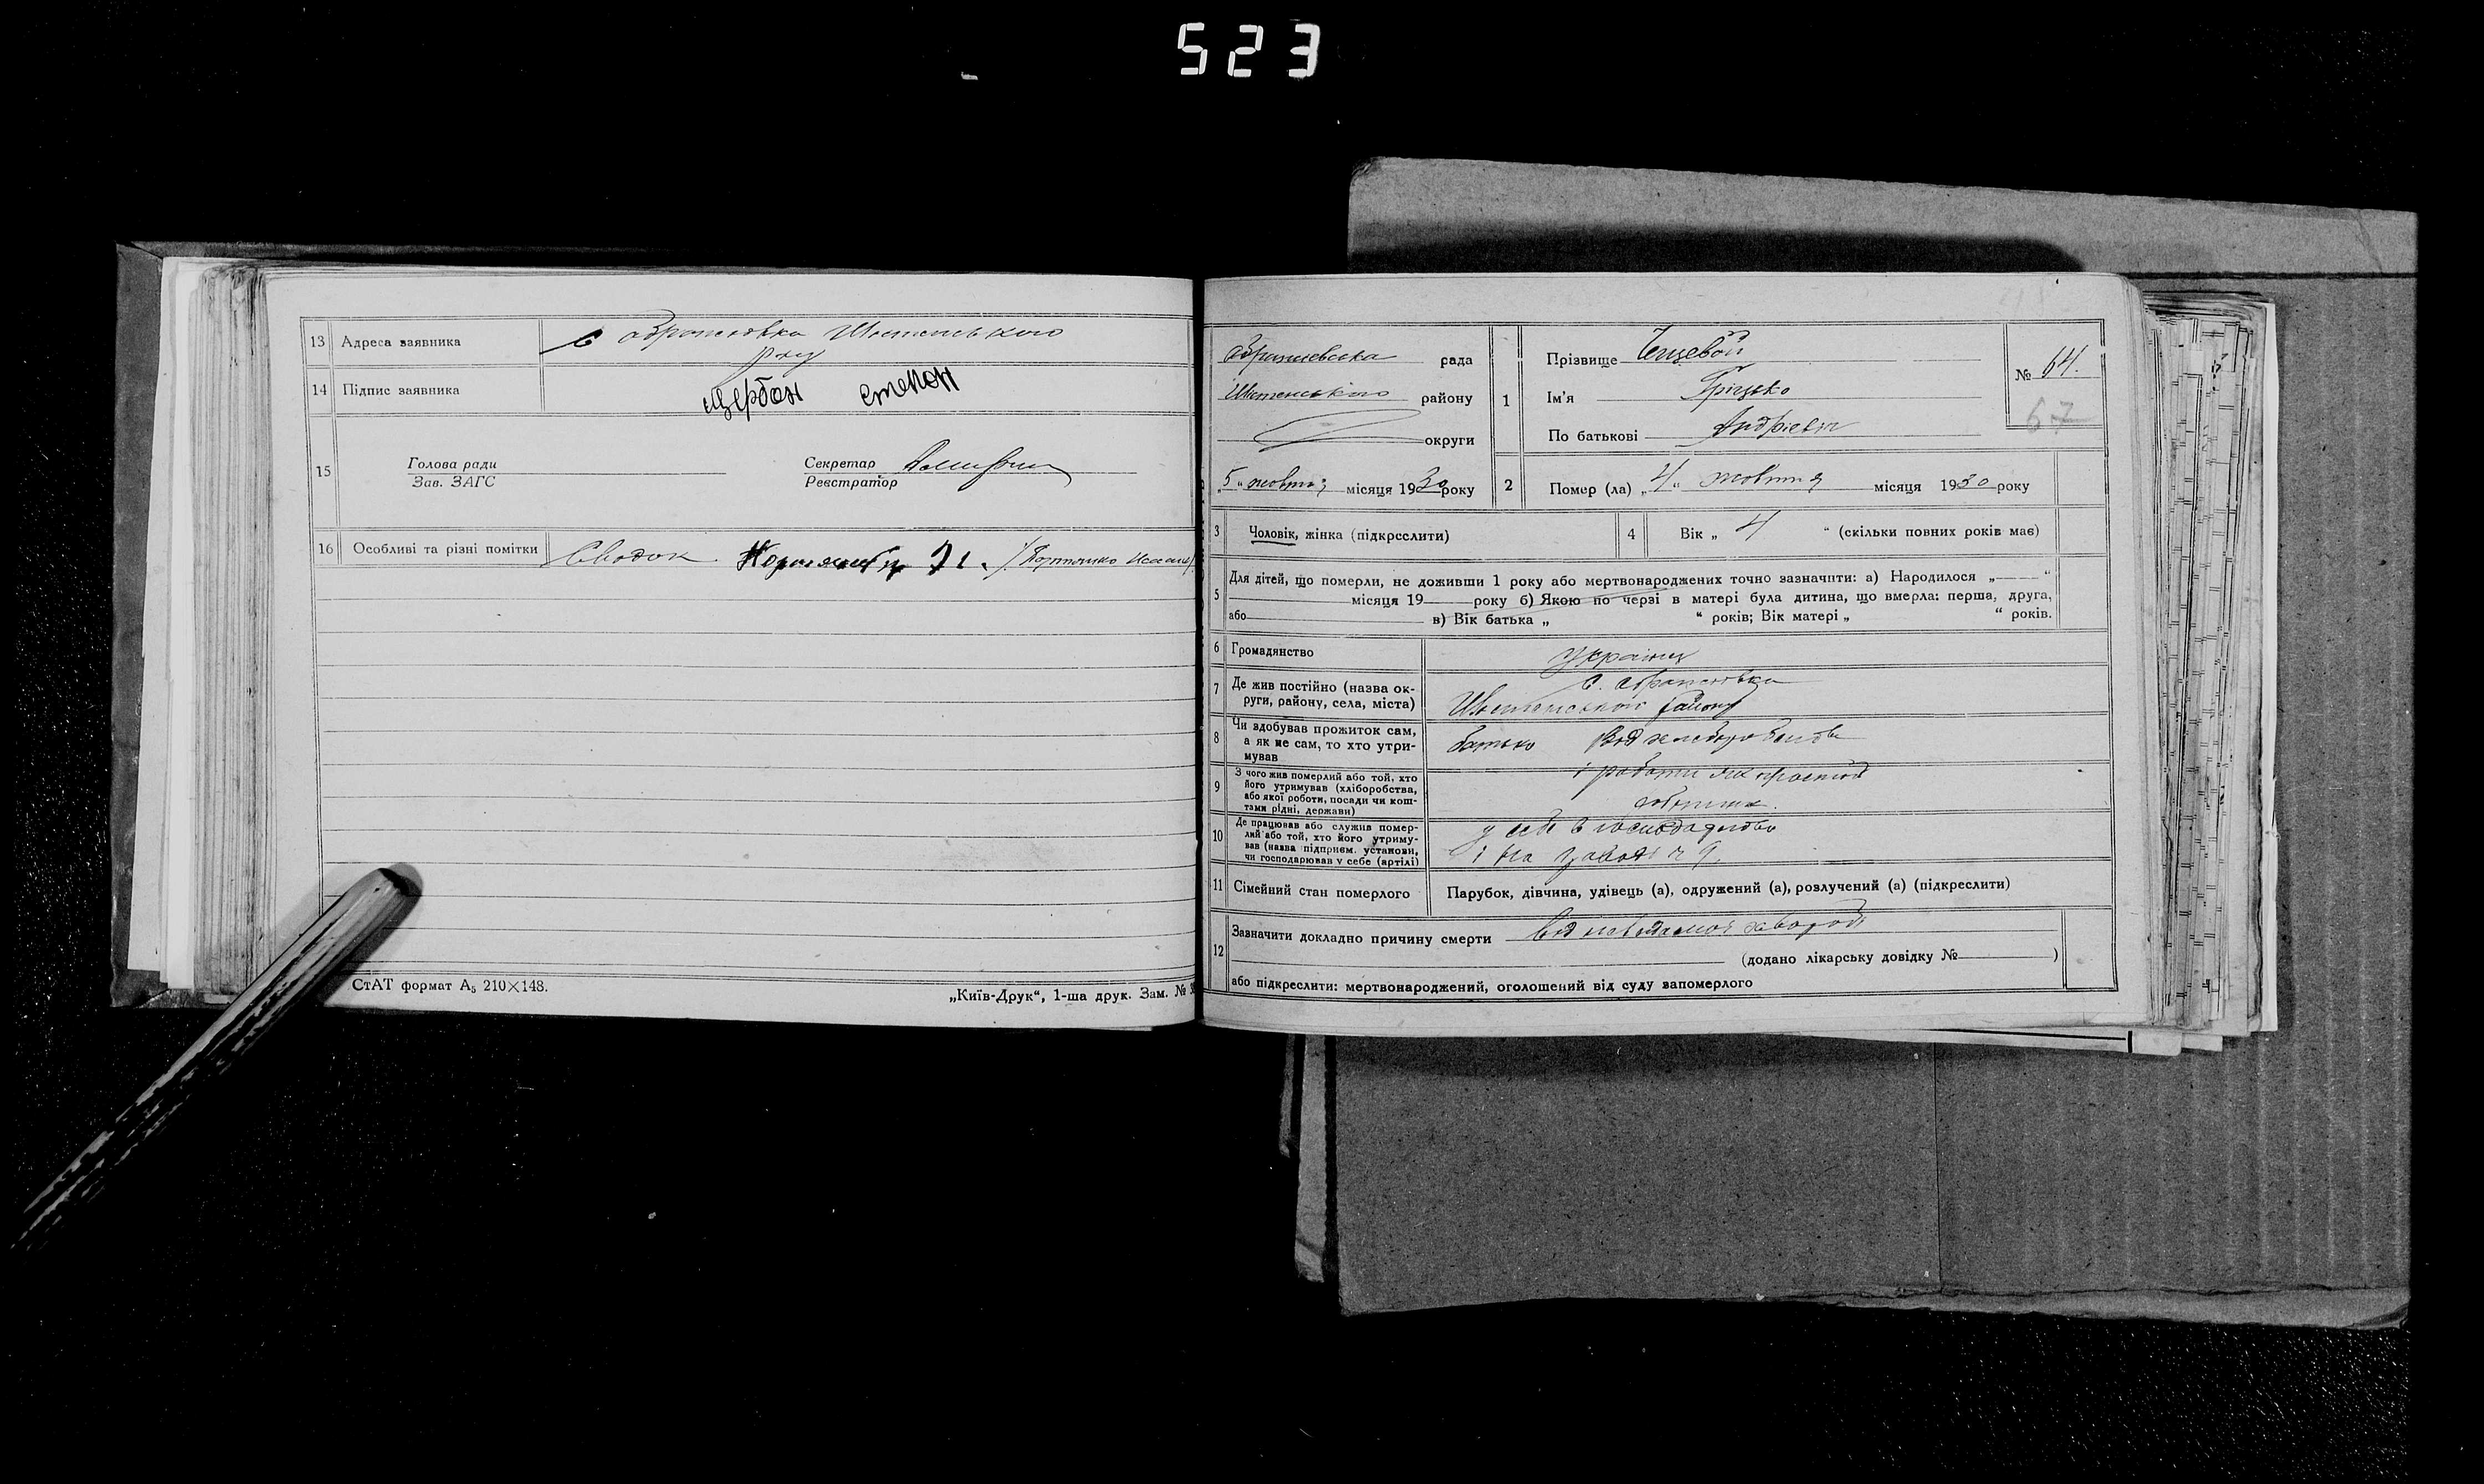 523
13 Адреса заявника с Шостенського
р-ну
14 Підпис заявника щербак степан
15 Голова ради
Зав. ЗАГС
Секретар
Реєстратор
16 Особливі та різні помітки Сводок.
СтАТ формат А5 210×148.
„Київ-Друк“, 1-ша друк. Зам. №
рада
Шостенського району
округи
„5“ жовтня місяця 1930 року
1 Прізвище
Ім'я Гріцько
По батькові Андрієвич
№ 64.
67
2 Помер (ла) „4“ жовтня місяця 1930 року
3 Чоловік, жінка (підкреслити)
4 Вік „ 4 “ (скільки повних років має)
5 Для дітей, що померли, не доживши 1 року або мертвонароджених точно зазначити: а) Народилося „ “
місяця 19 року б) Якою по черзі в матері була дитина, що вмерла: перша, друга,
або в) Вік батька „ “ років; Вік матері „ “ років.
6 Громадянство Українец
7 Де жив постійно (назва ок-
руги, району, села, міста)
с.
району
8 Чи здобував прожиток сам,
а як не сам, то хто утри-
мував
батько від
9 З чого жив померлий або той, хто
його утримував (хліборобства,
або якої роботи, посади чи кош-
тами рідні, держави)
і работи як простой
10 Де працював або служив помер-
лий або той, хто його утриму-
вав (назва підприєм. установи,
чи господарював у себе (артілі)
у себе в господарстве
і на заводі № 9.
11 Сімейний стан померлого Парубок, дівчина, удівець (а), одружений (а), розлучений (а) (підкреслити)
12 Зазначити докладно причину смерти від невідомої хвороби
(додано лікарську довідку № )
або підкреслити: мертвонароджений, оголошений від суду запомерлого